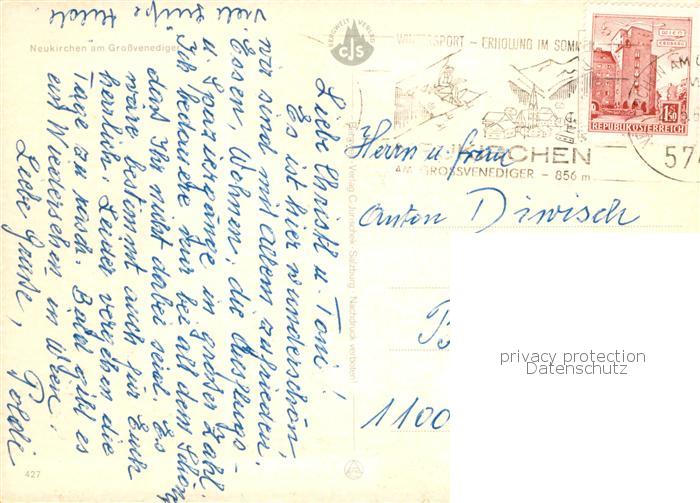 Neukirchen am Großvenediger
Liebe Christl u. Toni!
Es ist hier wunderschön
wir sind mit allem zufrieden.
Essen, Wohnen, die Ausflugs-
u. Spaziergänge in großer Zahl.
Ich bedaure nur bei all dem Schönen
daß Ihr nicht dabei seid. Es
wäre bestimmt auch für Euch
herrlich. Leider vergehen die
Tage zu rasch. Bald gibt es
ein Wiedersehen in Wien.
Liebe Grüße,
Poldi
viele Grüße
427
BERGWELT VERLAG
CJS
Verlag C. Jurischek · Salzburg · Nachdruck verboten!
WINTERSPORT - ERHOLUNG IM SOMMER
KIRCHEN
AM GROSSVENEDIGER - 856 m
WIEN
1.50
REPUBLIK ÖSTERREICH
57
Herrn u. Frau
Anton Diwisch
1100
privacy protection
Datenschutz